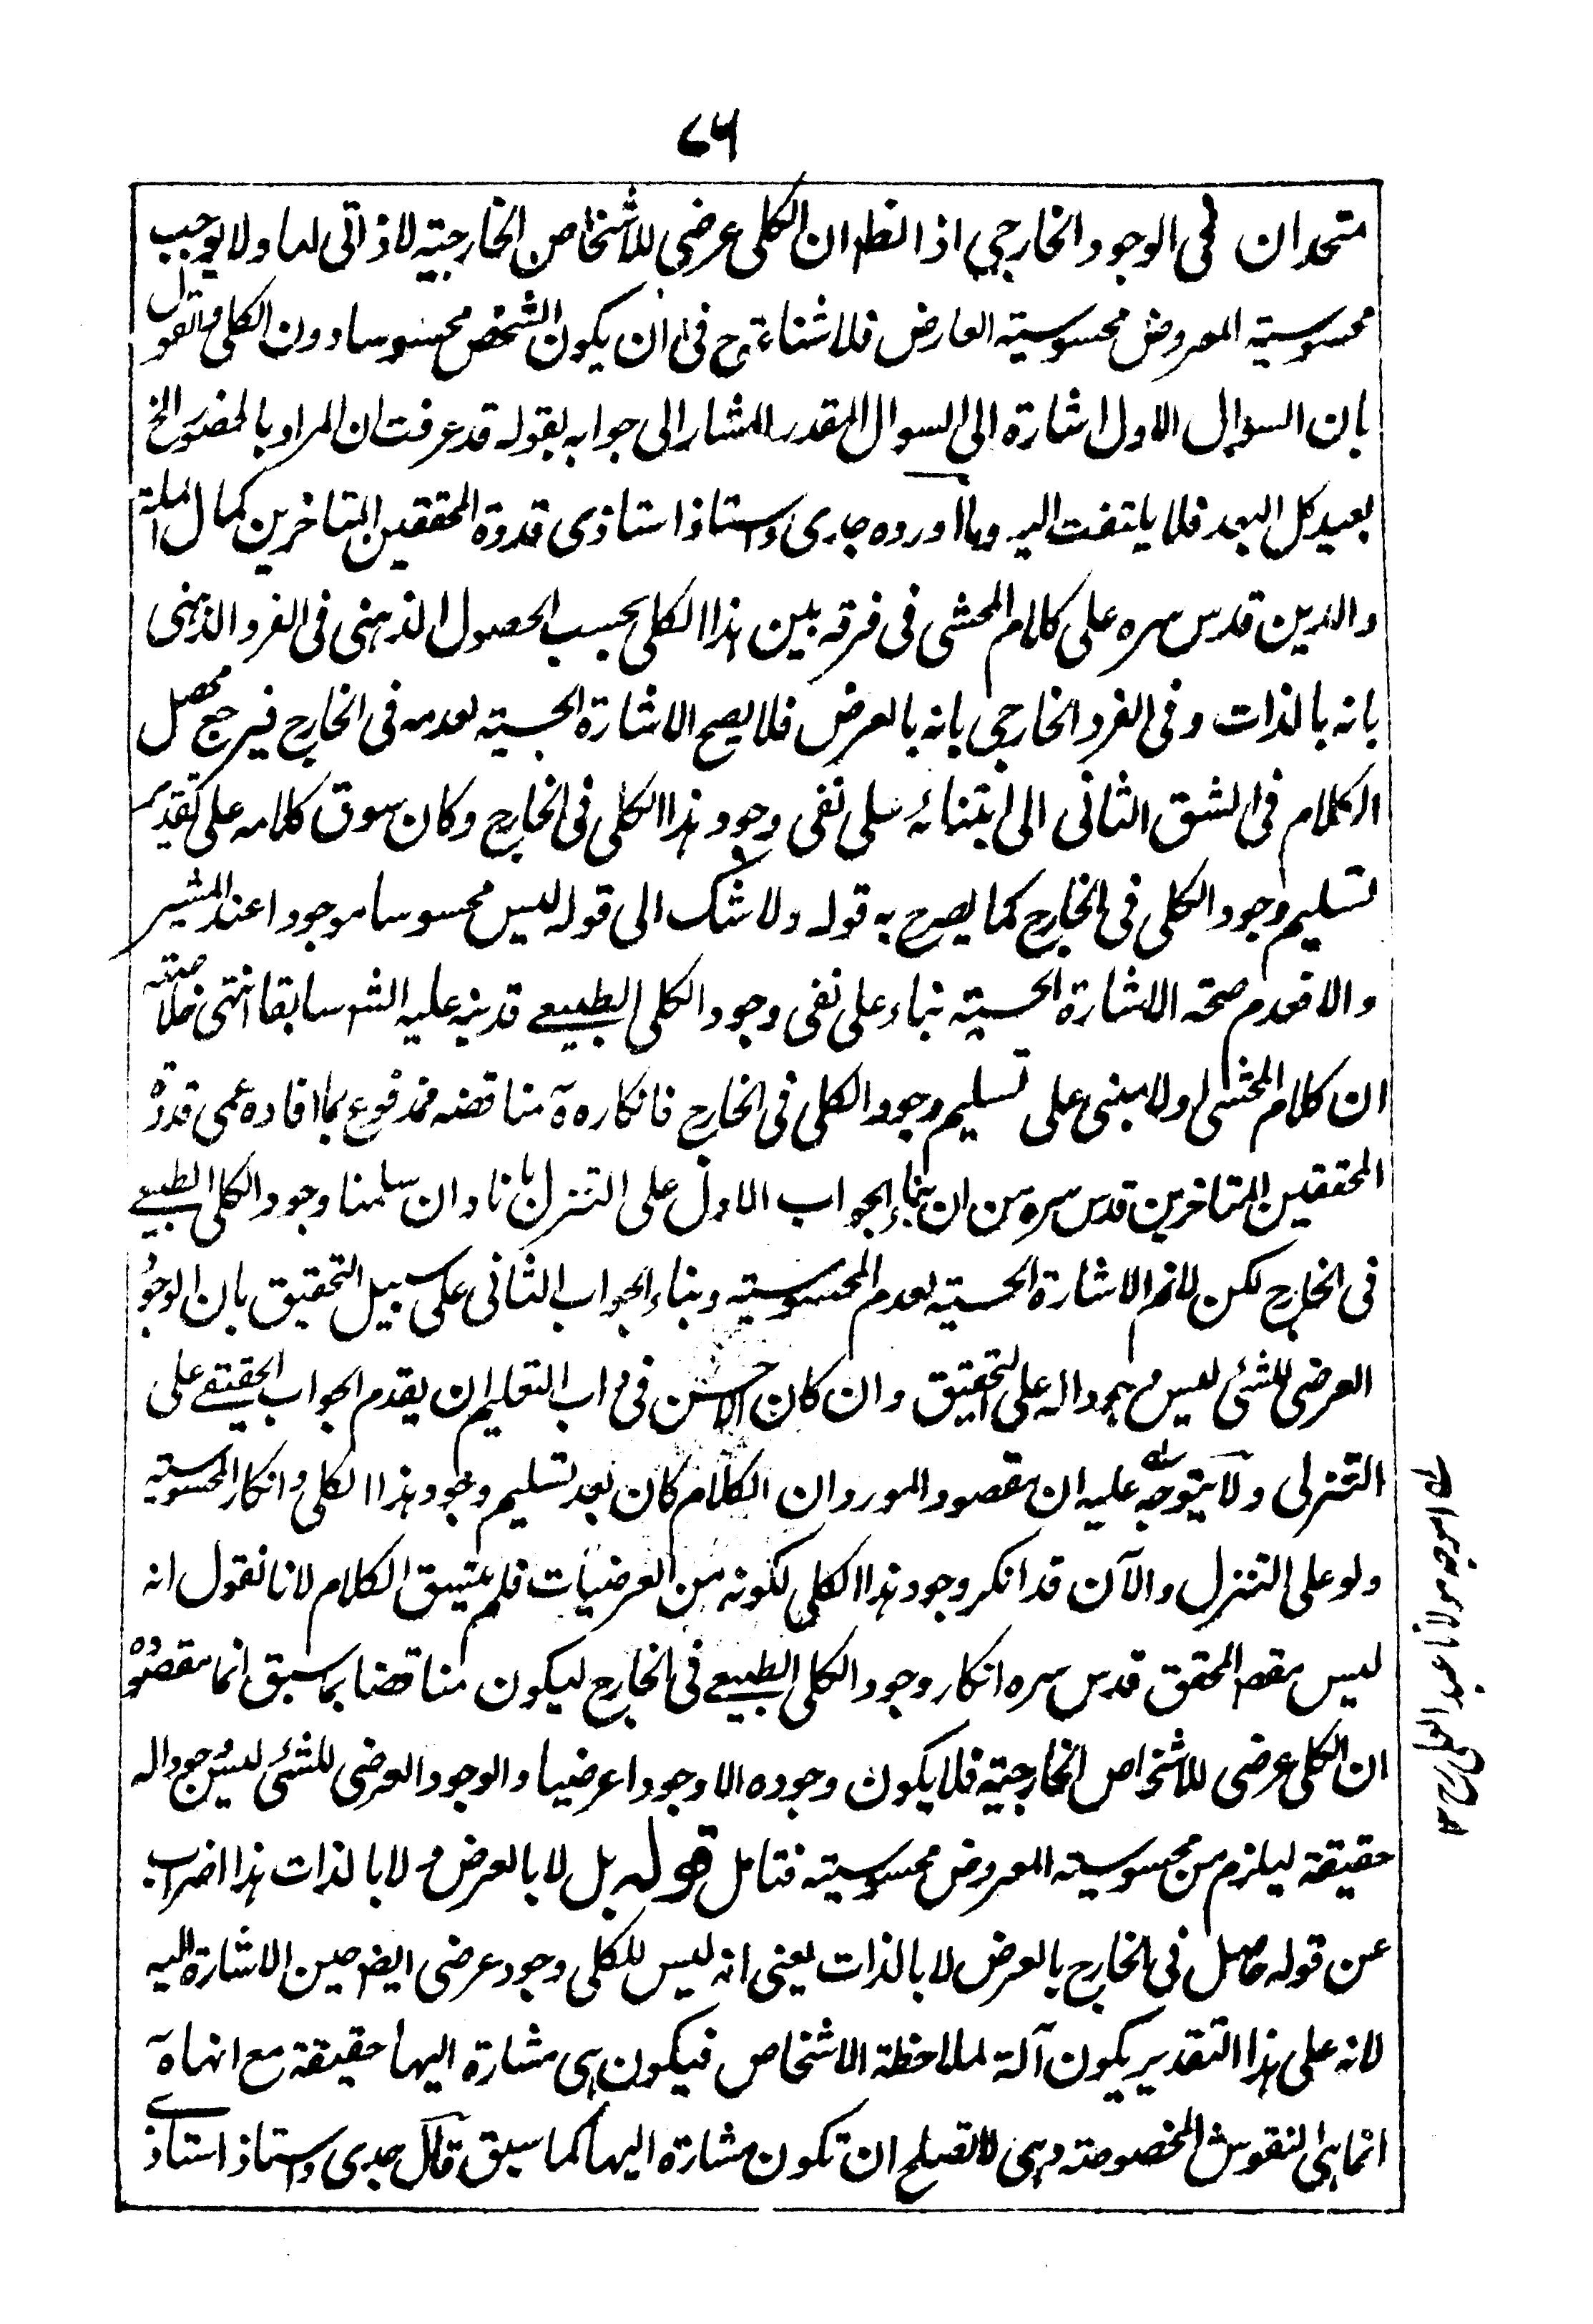 ٧٦
متحدان في الوجود الخارجي اذ الظ ان الكلي عرضي للاشخاص الخارجية لا ذاتي لها ولا يوجب
محسوسية المعروض محسوسية العارض فلا شناعة ح في ان يكون الشخص محسوسا دون الكلي والقول
بان السوال الاول اشارة الى السوال المقدر المشار الى جوابه بقوله قد عرفت ان المراد بالحضور الخ
بعيد كل البعد فلا يلتفت اليه وما اورده جدي واستاذ استاذي قدوة المحققين المتاخرين كمال الملة
والدين قدس سره على كلام المحشي في فرقه بين هذا الكلي بحسب الحصول الذهني في الفرد الذهني
بانه بالذات وفي الفرد الخارجي بانه بالعرض فلا يصح الاشارة الحسية لعدمه في الخارج فيرجع محصل
الكلام في الشق الثاني الى ابتنائه على نفي وجود هذا الكلي في الخارج وكان سوق كلامه على تقدير
تسليم وجود الكلي في الخارج كما يصرح به قوله ولا شك الى قوله ليس محسوسا موجودا عند المشير
والا فعدم صحة الاشارة الحسية بناء على نفي وجود الكلي الطبيعي قد نبه عليه الش سابقا انتهى خلاصته
ان كلام المحشي اولا مبني على تسليم وجود الكلي في الخارج فانكاره ة مناقضه فمدفوع بما افاده عمي قدوة
المحققين المتاخرين قدس سره من ان بناء الجواب الاول على التنزل بانا وان سلمنا وجود الكلي الطبيعي
في الخارج لكن لانم الاشارة الحسية لعدم المحسوسية وبناء الجواب الثاني على سبيل التحقيق بان الوجود
العرضي للشئ ليس وجودا له على التحقيق وان كان الاحسن في داب التعليم ان يقدم الجواب الحقيقي على
التنزلي ولا يتوجه عليه ان مقصود المورد ان الكلام كان بعد تسليم وجود هذا الكلي وانكار المحسوسية
ولو على التنزل والآن قد انكر وجود هذا الكلي لكونه من العرضيات فلم يتسق الكلام لانا نقول انه
ليس مقص المحقق قدس سره انكار وجود الكلي الطبيعي في الخارج ليكون مناقضا بما سبق انما مقصوده
ان الكلي عرضي للاشخاص الخارجية فلا يكون وجوده الا وجودا عرضيا والوجود العرضي للشئ ليس وجودا له
حقيقة ليلزم من محسوسية المعروض محسوسيته فتامل قوله بل لا بالعرض ولا بالذات هذا اضراب
عن قوله حاصل في الخارج بالعرض لا بالذات يعني انه ليس للكلي وجود عرضي ايض حين الاشارة اليه
لانه على هذا التقدير يكون آلة لملاحظة الاشخاص فيكون هي مشارة اليها حقيقة مع انها ة
انما هي النقوش المخصوصة وهي لا تصلح ان تكون مشارة اليها كما سبق قال جدي واستاذ استاذي